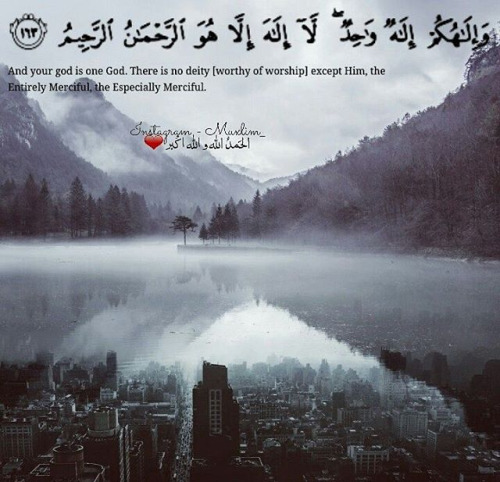 وَإِلَٰهُكُمْ إِلَٰهٌ وَٰحِدٌ ۖ لَّآ إِلَٰهَ إِلَّا هُوَ ٱلرَّحْمَٰنُ ٱلرَّحِيمُ ١٦٣
And your god is one God. There is no deity [worthy of worship] except Him, the
Entirely Merciful, the Especially Merciful.
Instagram - Muslim_
الحمدُ الله و الله اكبر